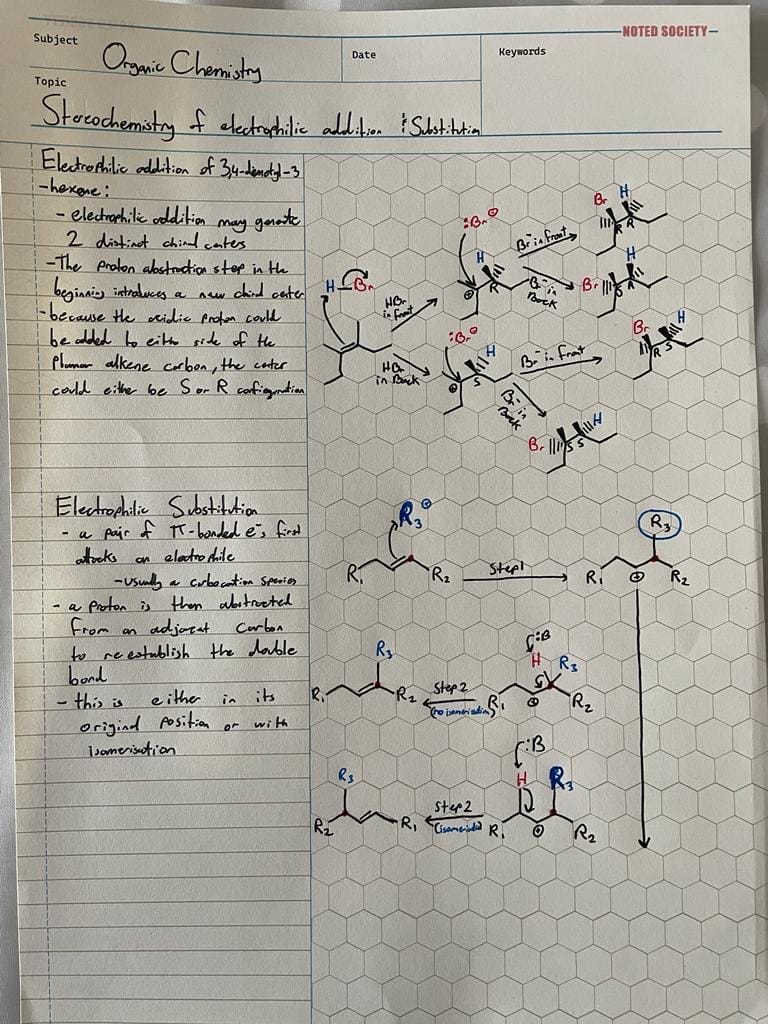 NOTED SOCIETY
Subject
Organic Chemistry
Date
Keywords
Topic
Stereochemistry of electrophilic addition & Substitution
Electrophilic addition of 3,4-dimethyl-3
-hexene:
- electrophilic addition may generate
2 distinct chiral centers
- The proton abstraction step in the
beginning introduces a new chiral center
- because the acidic proton could
be added to either side of the
Planar alkene carbon, the center
could either be S or R configuration
H Br
HBr
in front
HBr
in Back
:Br⊖
H
R
⊕
Br⁻ in front
Br⁻ in
Back
Br H
R R
Br H
S R
:Br⊖
H
S
⊕
Br⁻ in front
Br⁻ in
Back
Br H
R S
Br H
S S
Electrophilic Substitution
- a pair of π-bonded e⁻s first
attacks an electrophile
- Usually a carbocation species
- a proton is then abstracted
from an adjacent carbon
to reestablish the double
bond
- this is either in its
original position or with
isomerisation
R₃⊕
R₁ R₂
Step 1
R₃
R₁ ⊕ R₂
:B
H R₃
R₁ ⊕ R₂
Step 2
(no isomerisation)
R₃
R₁ R₂
:B
H R₃
R₁ ⊕ R₂
Step 2
R₃
R₂ R₁